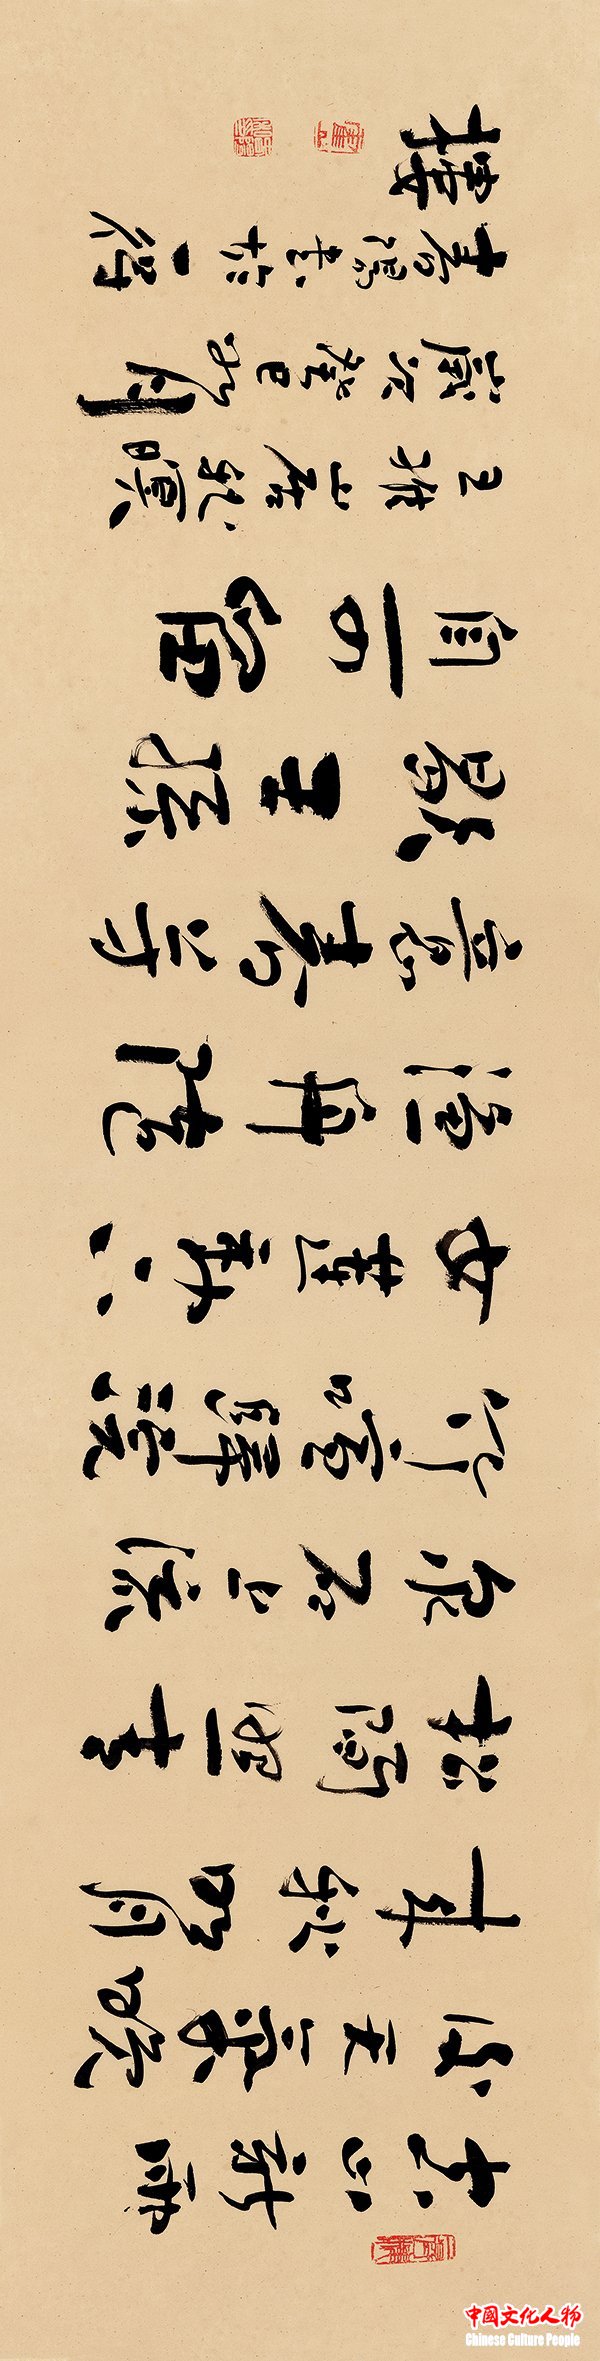 空山新雨
後天氣晚
來秋明月
松間照清
泉石上流
竹喧歸浣
女蓮動下
漁舟隨
意春芳
歇王孫
自可留
王維山居秋暝
歲次癸巳如月
書於一得
樓
中國文化人物
Chinese Culture People